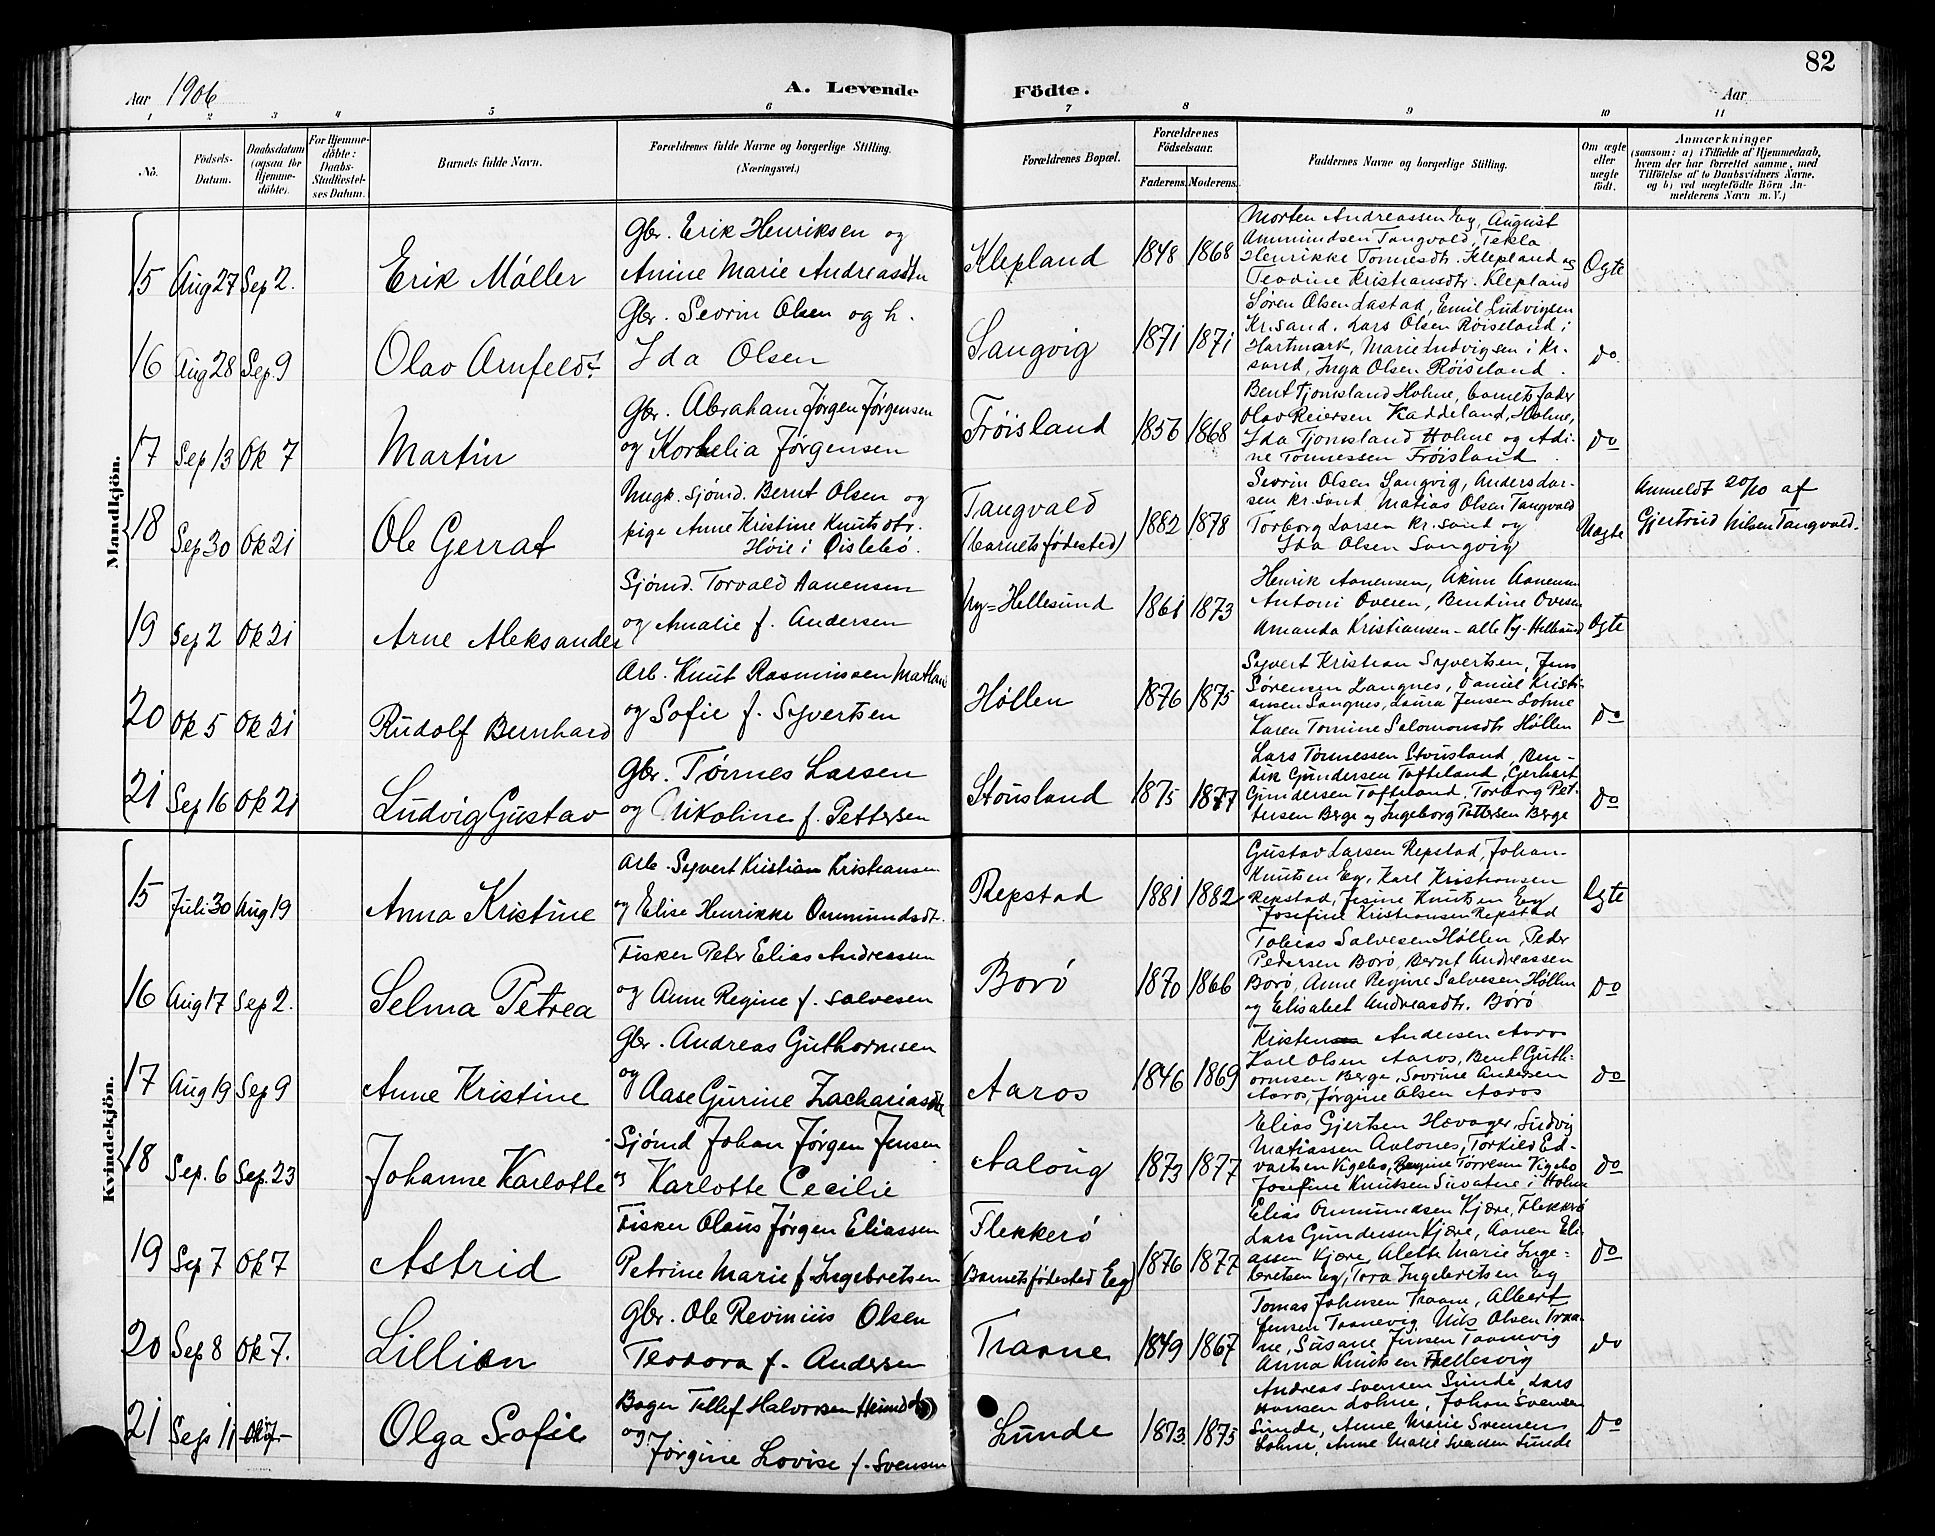 82
Aar 1906
A. Levende Födte.
Aar
1 2 3 4 5 6 7 8 9 10 11
No.
Födsels-Datum.
Daabsdatum (ogsaa for Hjemme-döbte).
For Hjemme-döbte: Daabs-Stadfæstel-ses Datum.
Barnets fulde Navn.
Forældrenes fulde Navne og borgerlige Stilling.
(Næringsvei.)
Forældrenes Bopæl.
Forældrenes Födselsaar.
Faderens. Moderens.
Faddernes Navne og borgerlige Stilling.
Om ægte eller uægte födt.
Anmærkninger
(saasom: a) i Tilfælde af Hjemmedaab,
hvem der har forrettet samme, med
Tilföielse af to Daabsvidners Navne.
og b) ved uægtefödte Börn An-
melderens Navn m. V.)
Mandkjön.
15 Aug 27 Sep 2. Erik Møller
Gbr. Erik Henriksen og
Anine Marie Andreasdtr
Klepland 1848 1868
Morten Andreassen Eg, August
Ammundsen Tangvald, Tekla
Henrikke Tønnesdtr. Klepland og
Teodine Kristiansdtr. Klepland
Ægte
16 Aug 28 Sep 9 Olav Arnfeldt
Gbr. Sevrin Olsen og h.
Ida Olsen
Sangvig 1871 1871
Søren Olsen Lastad, Emil Ludvigsen
Kr.sand, Lars Olsen Røiseland i
Hartmark, Marie Ludvigsen i Kr.
sand, Inga Olsen Røiseland.
do.
17 Sep 13 Ok 7 Martin
Gbr. Abraham Jørgen Jørgensen
og Kornelia Jørgensen
Frøisland 1856 1868
Bent Tjomsland Holme, barnets fader
Olav Reiersen Kaddeland, Holme,
Ida Tjomsland Holme og Adi-
ne Tønnessen Frøisland.
do
18 Sep 30 Ok 21 Ole Gerrat
Ungk. sjømd. Bernt Olsen og
pige Anne Kristine Knutsdtr.
Høie i Øislebø.
Tangvald
(barnets fødested) 1882 1878
Sevrin Olsen Sangvig, Anders Lar-
sen Kr.sand Matias Olsen Tangvald
Torborg Larsen Kr.sand og
Ida Olsen Sangvig
Uægte
Anmeldt 20/10 af
Gjertrud Nilsen Tangvald.
19 Sep 2 Ok 21 Arne Aleksander
Sjømd. Torvald Aanensen
og Amalie f. Andersen
Ny=Hellesund 1861 1873
Henrik Aanensen, Akim Aanensen
Antoni Ovesen, Bendine Ovesen
Amanda Kristiansen - alle Ny-Hellesund
Ægte
20 Ok 5 Ok 21 Rudolf Bernhard
Arb. Knut Rasmussen
og Sofie f. Syvertsen
Høllen 1876 1875
Syvert Kristian Syvertsen, Jens
Sørensen Langnes, Daniel Kristi-
ansen Langnes, Laura Jensen Lohne
Karen Tomine Salomonsdtr Høllen
do
21 Sep 16 Ok 21 Ludvig Gustav
Gbr. Tønnes Larsen
og Nikoline f. Pettersen
Stousland 1875 1877
Lars Tønnessen Stousland, Ben-
dik Gundersen Tofteland, Gerhart
Gundersen Tofteland, Torborg Pet-
tersen Berge og Ingeborg Pettersen Berge
do
Kvindekjön.
15 Juli 30 Aug 19 Anna Kristine
Arb. Syvert Kristian Kristiansen
og Elise Henrikke Ommundsdt.
Repstad 1881 1882
Gustav Larsen Repstad, Johan-
Knutsen Eg, Karl Kristiansen
Repstad, Jesine Knutsen Eg
Josefine Kristiansen Repstad
Ægte
16 Aug 17 Sep 2. Selma Petrea
Fisker Peter Elias Andreassen
og Anne Regine f. Salvesen
Borø 1870 1866
Tobias Salvesen Høllen, Peder
Pedersen Borø, Bernt Andreassen
Borø, Anne Regine Salvesen Høllen
og Elisabet Andreasdtr. Borø
do
17 Aug 19 Sep 9 Anne Kristine
Gbr. Andreas Guthormsen
og Aase Gurine Zachariasdtr
Aaros 1846 1869
Kristen Andersen Aaros
Karl Olsen Aaros, Bent Guth-
ormsen Berge, Sevrine Andersen
Aaros, Jørgine Olsen Aaros
do
18 Sep. 6 Sep. 23 Johanne Karlotte
Sjømd Johan Jørgen Jensen
og Karlotte Cecilie
Aaloug 1873 1877
Elias Gjertsen Hovager, Ludvig
Matiassen Aalones, Torkild Ed-
vartsen Vigebo, Regine Tørresen Vigebo
Josefine Knutsen i Holme
do
19 Sep 7 Ok 7 Astrid
Fisker Olaus Jørgen Eliassen
Petrine Marie f Ingebretsen
Flekkerø
(Barnets fødested Eg) 1876 1877
Elias Ommundsen Kjære, Flekkerø
Lars Gundersen Kjære, Aanen Eli-
assen Kjære, Alette Marie Inge-
bretsen Eg, Tora Ingebretsen Eg
do
20 Sep 8 Ok 7. Lillian
Gbr. Ole Revinius Olsen
Teodora f. Andersen
Traane 1849 1867
Tomas Johnsen Traane, Albert
Jensen Traanevig, Nils Olsen Traa-
ne, Susane Jensen Traanevig
Anna Knutsen Hellesvig
do
21 Sep 11 Olga Sofie
Bager Tellef Halvorsen
og Jørgine Lovise f. Svensen
Lunde 1873 1875
Andreas Svensen Lunde, Lars
Hansen Lohne, Johan Svensen
Lunde, Anne Marie Svensen
Lohne, Anne Marie Svensen Lunde
do